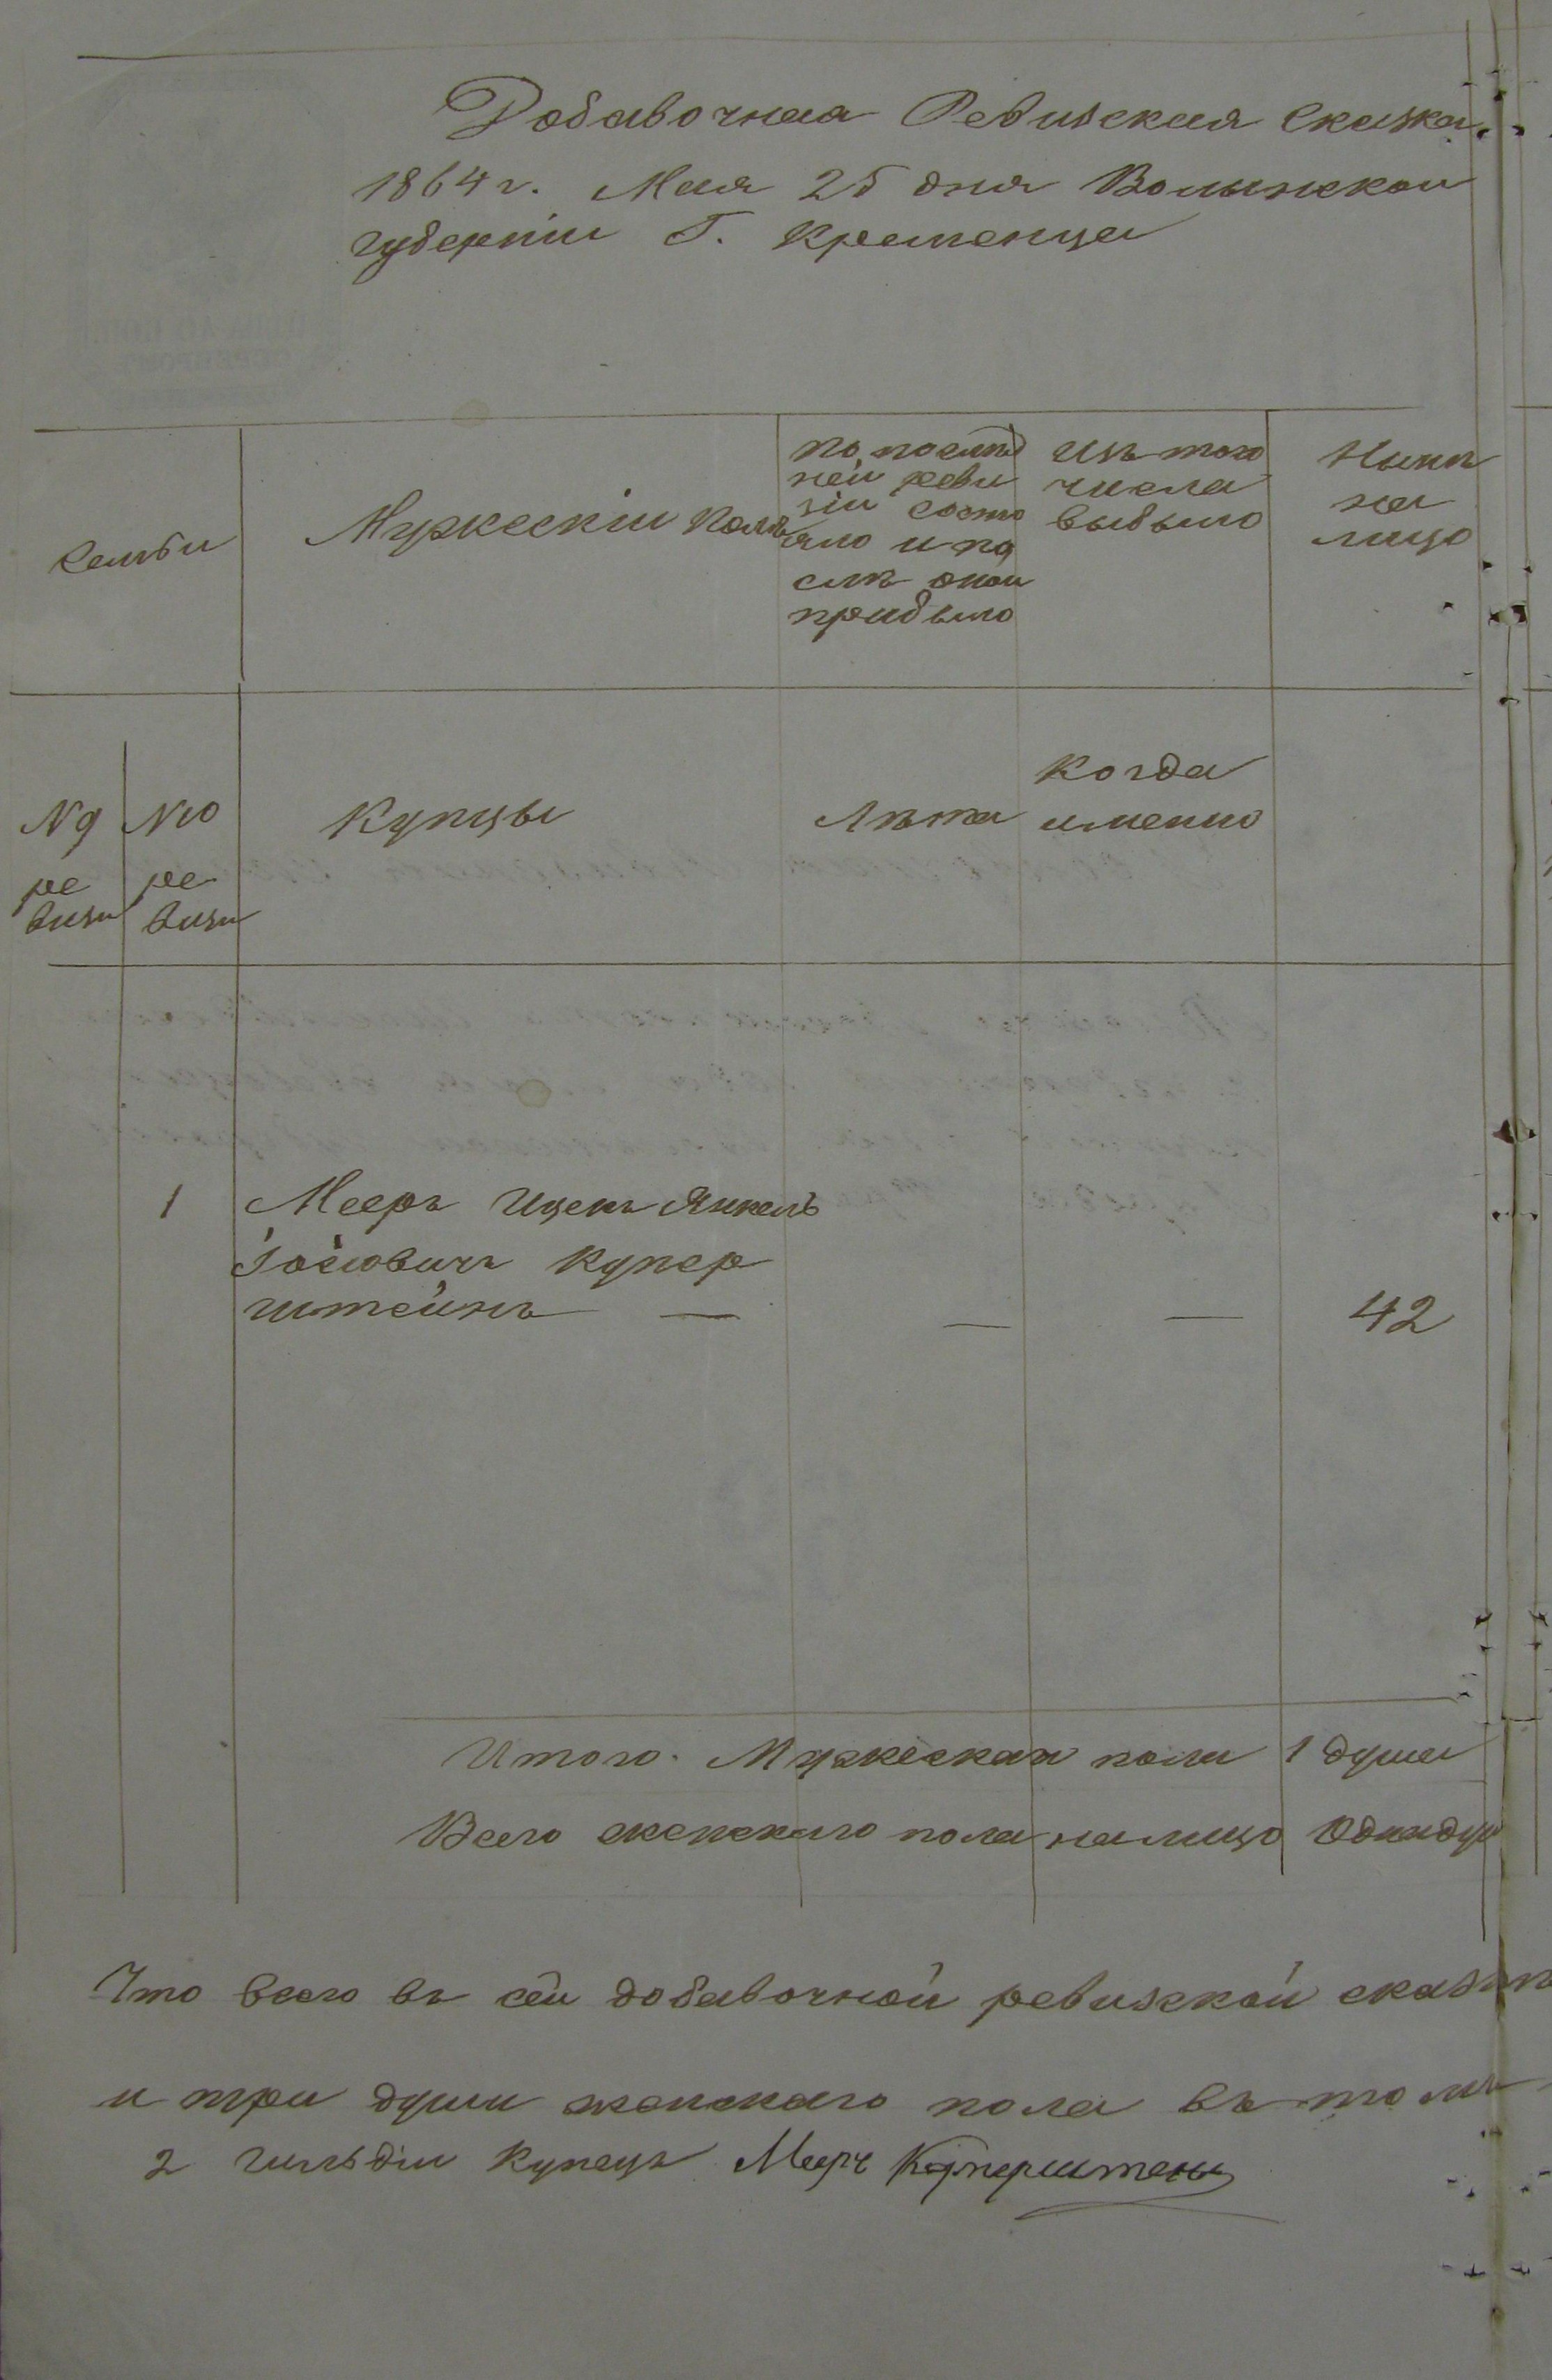 Добавочная Ревизская Сказка
1864 г. Мая 25 дня Волынской
губерніи Г. Кременца
Семьи
Мужескій полъ
по послѣд
ней реви
зіи состо
яло и по
слѣ оной
прибыло
Изъ того
числа
выбыло
Нынѣ
на
лицо
№ 9
ре
визи
№ 10
ре
визи
Купцы
Лѣта
Когда
именно
1
Мееръ Ицекъ Янкель
Іосіовичъ Купер
штейнъ — — — 42
Итого. Мужескаи пола 1 душа
Всего женскаго пола на лицо Одна душ
Что всего въ сей добавочной ревизской сказкѣ
и три души женскаго пола въ томъ
2 гильдіи Купецъ Мееръ Куперштенъ